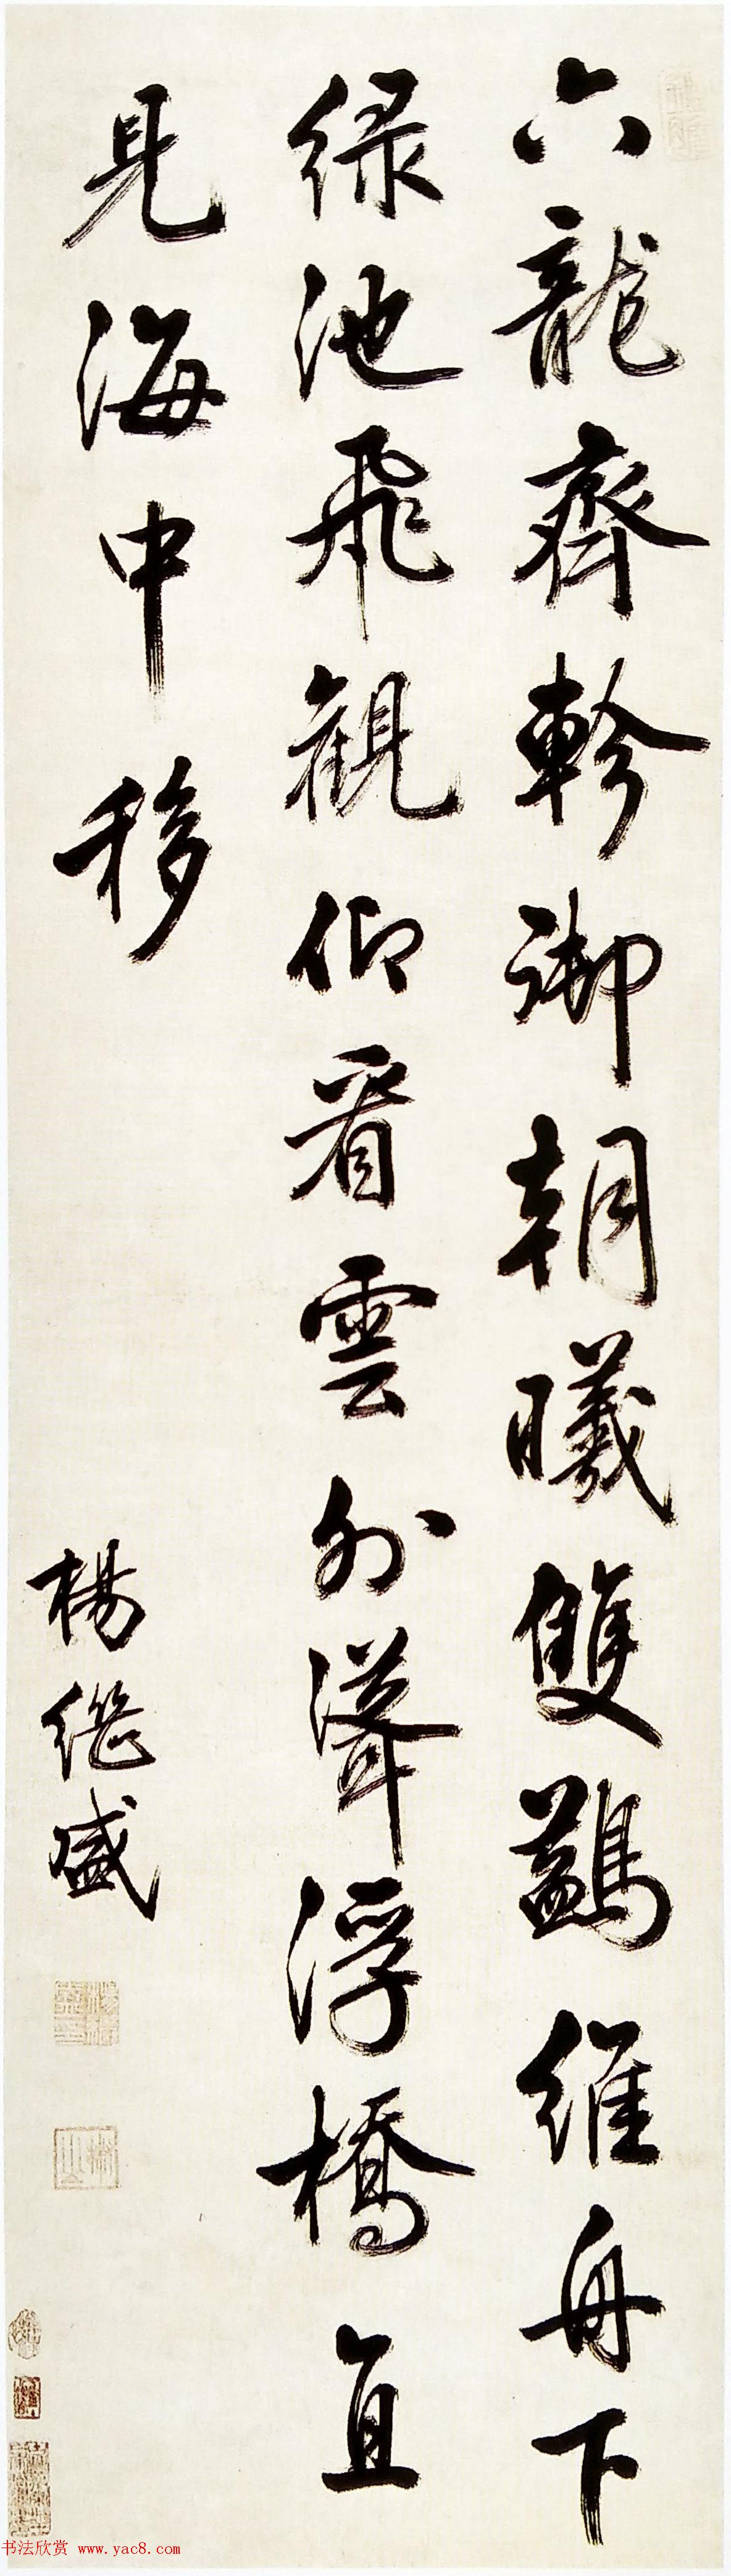 六龍齊軫御朝曦雙鷁維舟下
緑池飛觀仰看雲外聳浮橋直
見海中移
楊继盛
书法欣赏 www.yac8.com